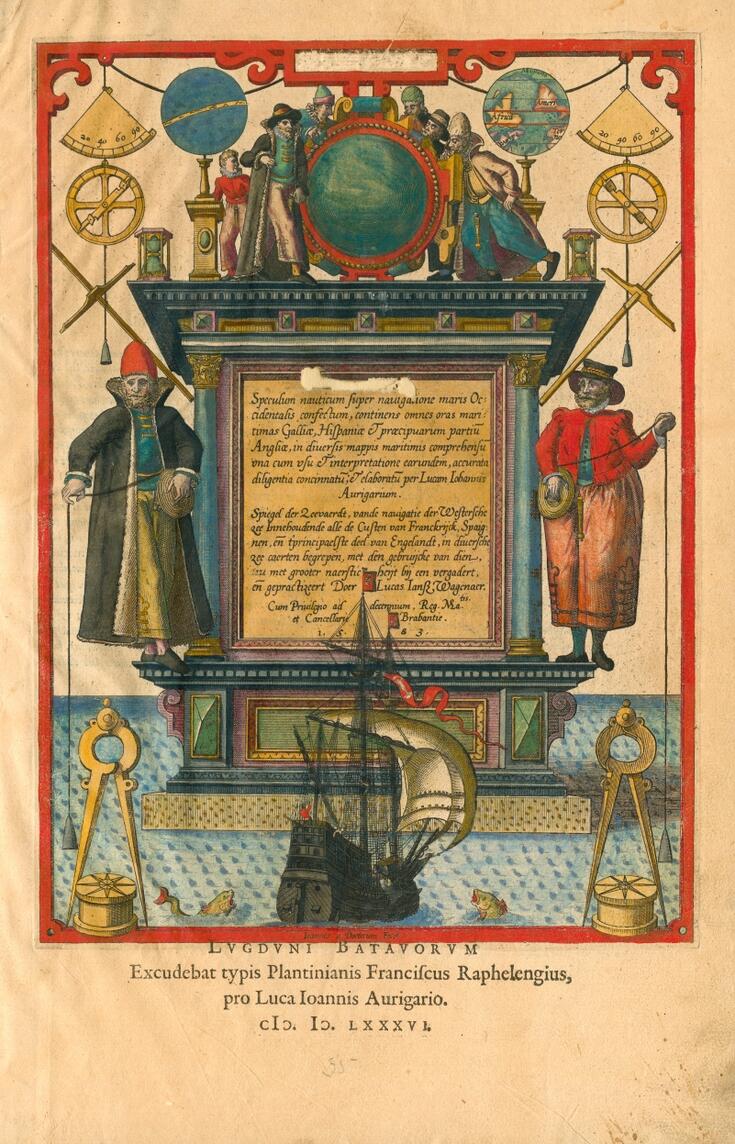 20 40 60 90
America
Africa
20 40 60 90
Speculum nauticum super nauigatione maris Oc-
cidentalis confectum, continens omnes oras mari-
timas Galliæ, Hispaniæ & præcipuarum partiũ
Angliæ, in diuersis mappis maritimis comprehensũ
vna cum vsu & interpretatione earundem, accurata
diligentia concinnatũ, & elaboratũ per Lucam Iohannis
Aurigarium.
Spiegel der Zeevaerdt, vande navigatie der Westersche
zee Innehoudende alle de Custen van Franckrijck, Spaig-
nen, eñ tprincipaelste deel van Engelandt, in diuersche
zee caerten begrepen, met den gebruijcke van dien,
nu met grooter naersticheijt bij een vergadert,
eñ gepractizeert Door Lucas Ianß Wagenaer.
Cum Priuilegio ad decennium, Reg. Ma.tis
et Cancellarie Brabantie.
1.5.83.
LVGDVNI BATAVORVM
Excudebat typis Plantinianis Franciscus Raphelengius,
pro Luca Ioannis Aurigario.
cIↃ. IↃ. LXXXVI.